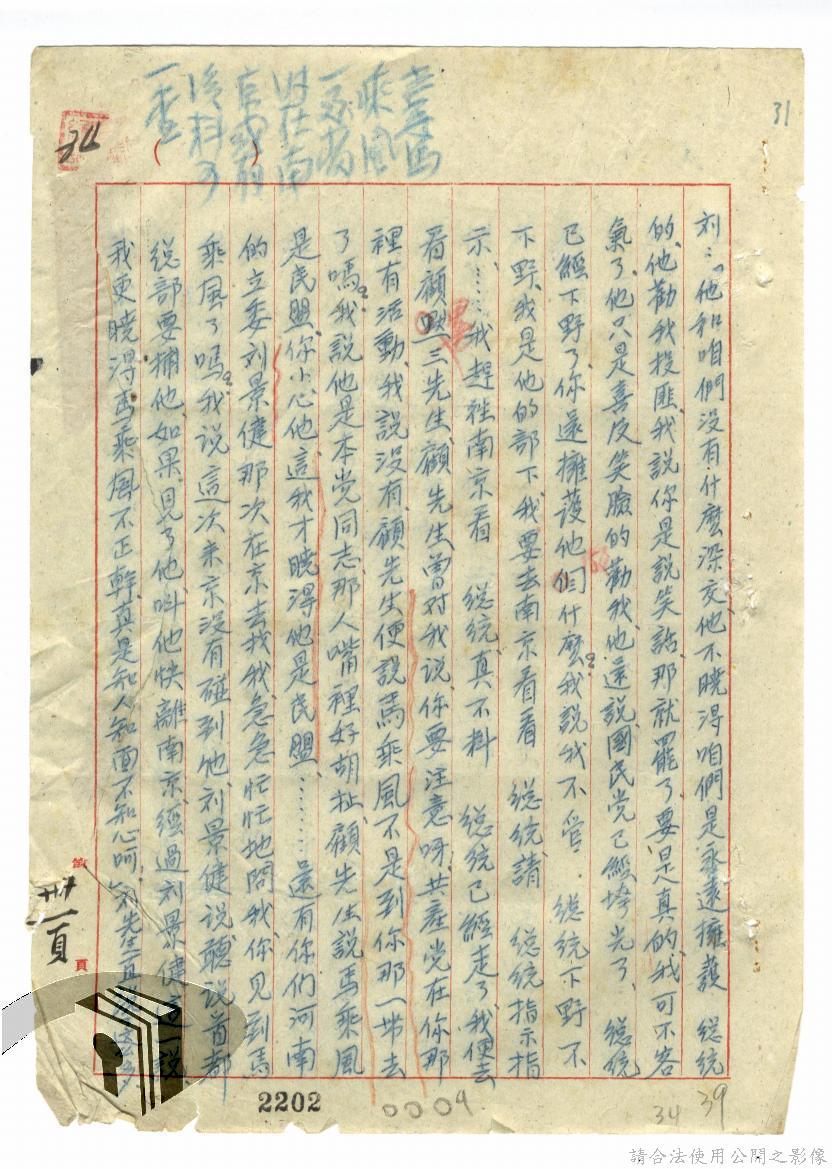 査馬
乘風
一逆省
时在南
京或有
資料可
一查
31
34
刘：「他和咱們没有什麽深交、他不曉得咱們是永遠擁護　総統
的、他勸我投匪、我說你是說笑話、那就罷了、要是真的、我可不客
氣了、他只是喜皮笑臉的勸我、他還說國民党已經垮光了、総統
已經下野了、你還擁護他們什麽？我說我不管、総統下野不
下野、我是他的部下、我要去南京看看　総統請　総統指示指
示……我趕往南京看　総統、真不料　総統已經走了、我便去
看顧墨三先生、顧先生曾对我說、你要注意呀、共產党在你那
裡有活動、我說没有、顧先生便說馬乘風不是到你那一帶去
了嗎？我說他是本党同志、那人嘴裡好胡扯、顧先生說馬乘風
是民盟、你小心他、這我才曉得他是民盟……還有你們河南
的立委刘景健那次在京去找我、急急忙忙地問我、你見到馬
乘風了嗎？我說這次来京没有碰到他、刘景健說、聽說首都
総部要捕他、如果見了他、叫他快離南京、經過刘景健這一說
我更曉得馬乘風不正幹、真是知人知面不知心呵」刘先生
第卅一頁
2202
0009
34
39
請合法使用公開之影像